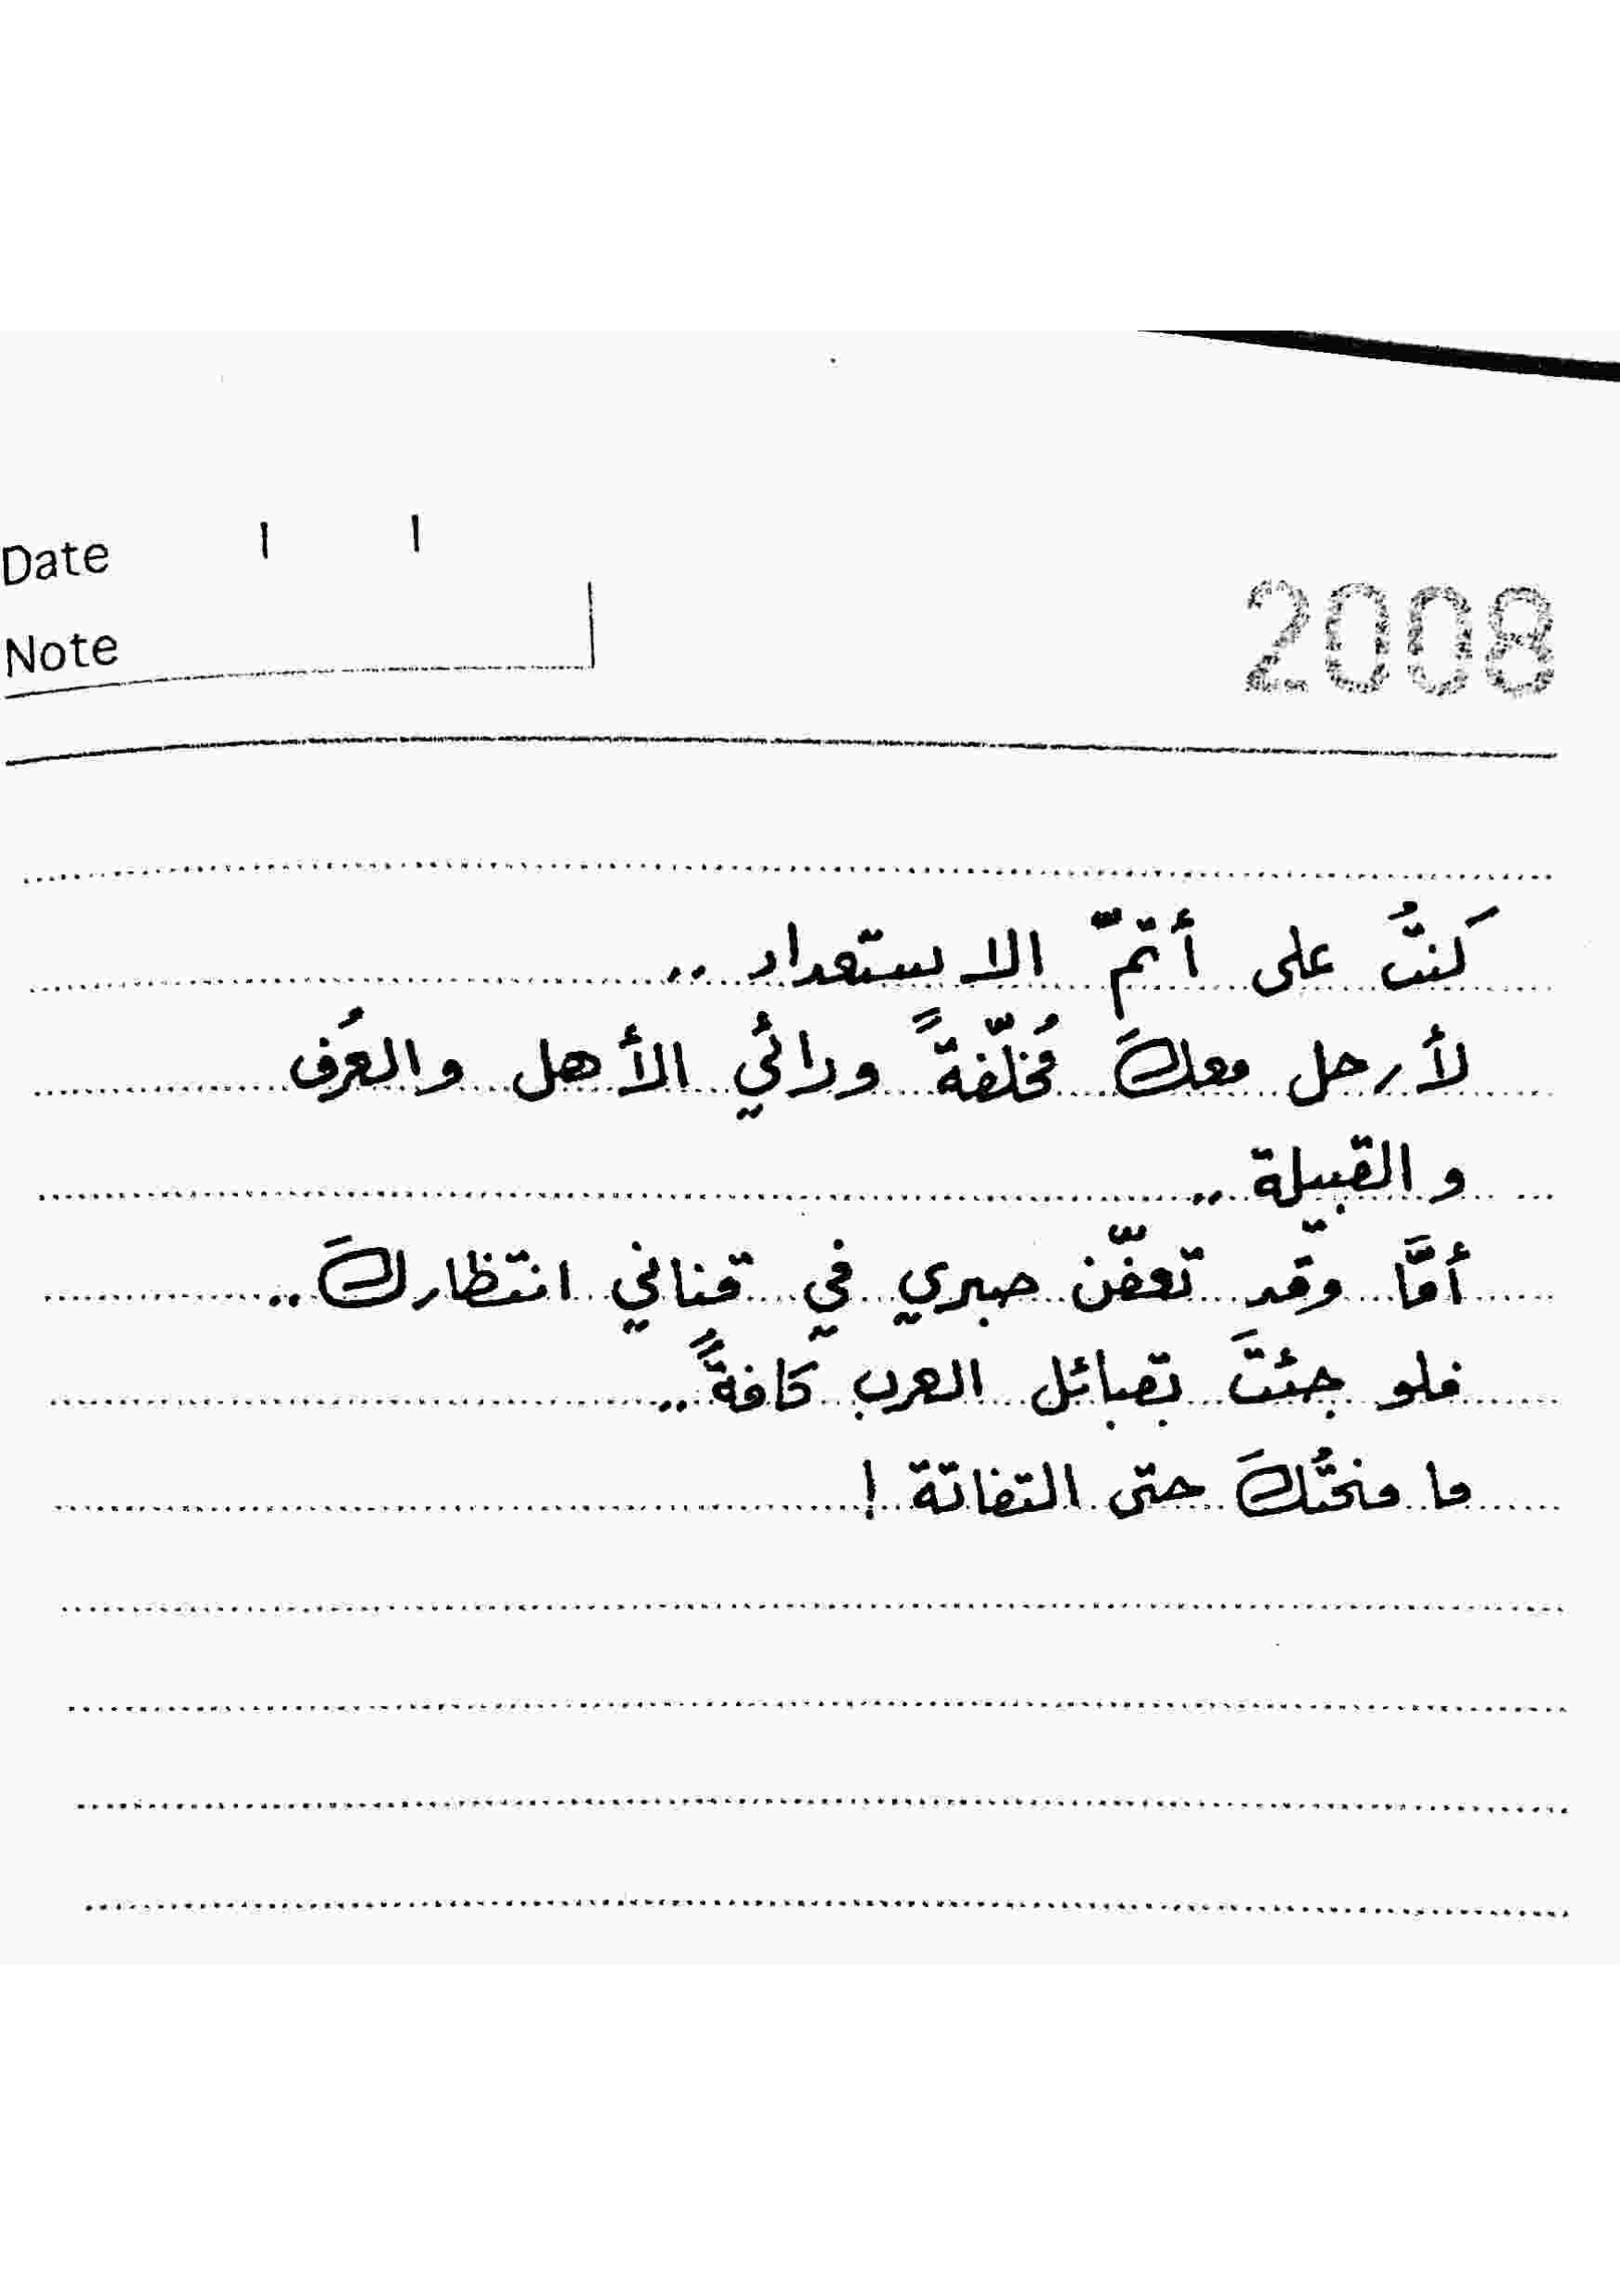 Date / /
Note
2008
كنتُ على أتمّ الاستعداد ..
لأرحل معكَ مُخلّفةً ورائي الأهل والعُرف
والقبيلة ..
أمَّا وقد تعفّن صبري في قناني انتظاركَ ..
فلو جئتَ بقبائل العرب كافةً ..
ما منحتُكَ حتى التفاتة !